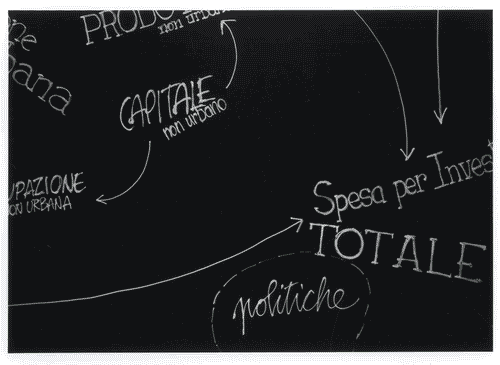 CAPITALE
non urbano
UPAZIONE
NON URBANA
Spesa per Invest
TOTALE
politiche
PRODO
non urbano
ne
bana